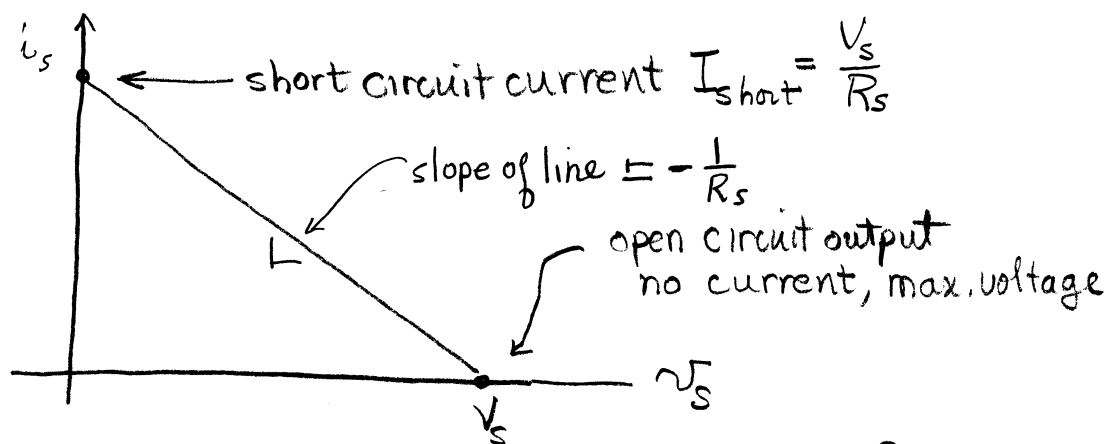 i_s
short circuit current I_short = V_s / R_s
slope of line = - 1 / R_s
open circuit output
no current, max. voltage
v_s
V_s